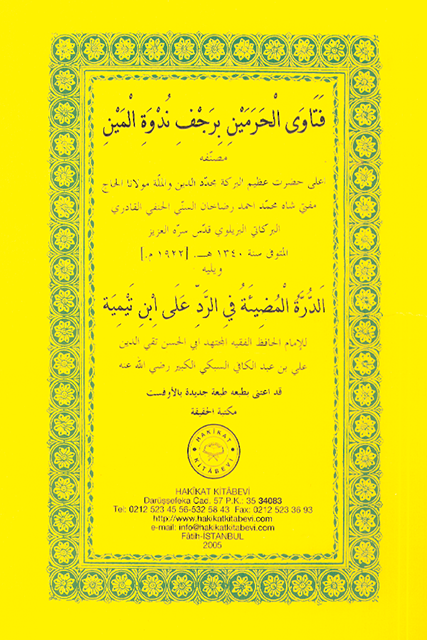 فَتَاوَى الْحَرَمَيْنِ بِرَجْفِ نُدْوَةِ الْمَيْنِ
مصنّفه
اعلى حضرت عظيم البركة مجدّد الدين والملّة مولانا الحاج
مفتي شاه محمّد احمد رضاخان السنّي الحنفي القادري
البركاتي البريلوي قدّس سرّه العزيز
المتوفى سنة ١٣٤٠ هـ. [١٩٢٢ م.]
ويليه
اَلدُّرَّةُ الْمُضِيئَةُ فِي الرَّدِّ عَلَى اِبْنِ تَيْمِيَة
للإمام الحافظ الفقيه المجتهد ابي الحسن تقي الدين
علي بن عبد الكافي السبكي الكبير رضي الله عنه
قد اعتنى بطبعه طبعة جديدة بالأوفست
مكتبة الحقيقة
HAKİKAT KİTÂBEVİ
HAKİKAT KİTÂBEVİ
Darüşşefeka Cad. 57 P.K.: 35 34083
Tel: 0212 523 45 56-532 58 43 Fax: 0212 523 36 93
http://www.hakikatkitabevi.com
e-mail: info@hakikatkitabevi.com
Fâtih-İSTANBUL
2005